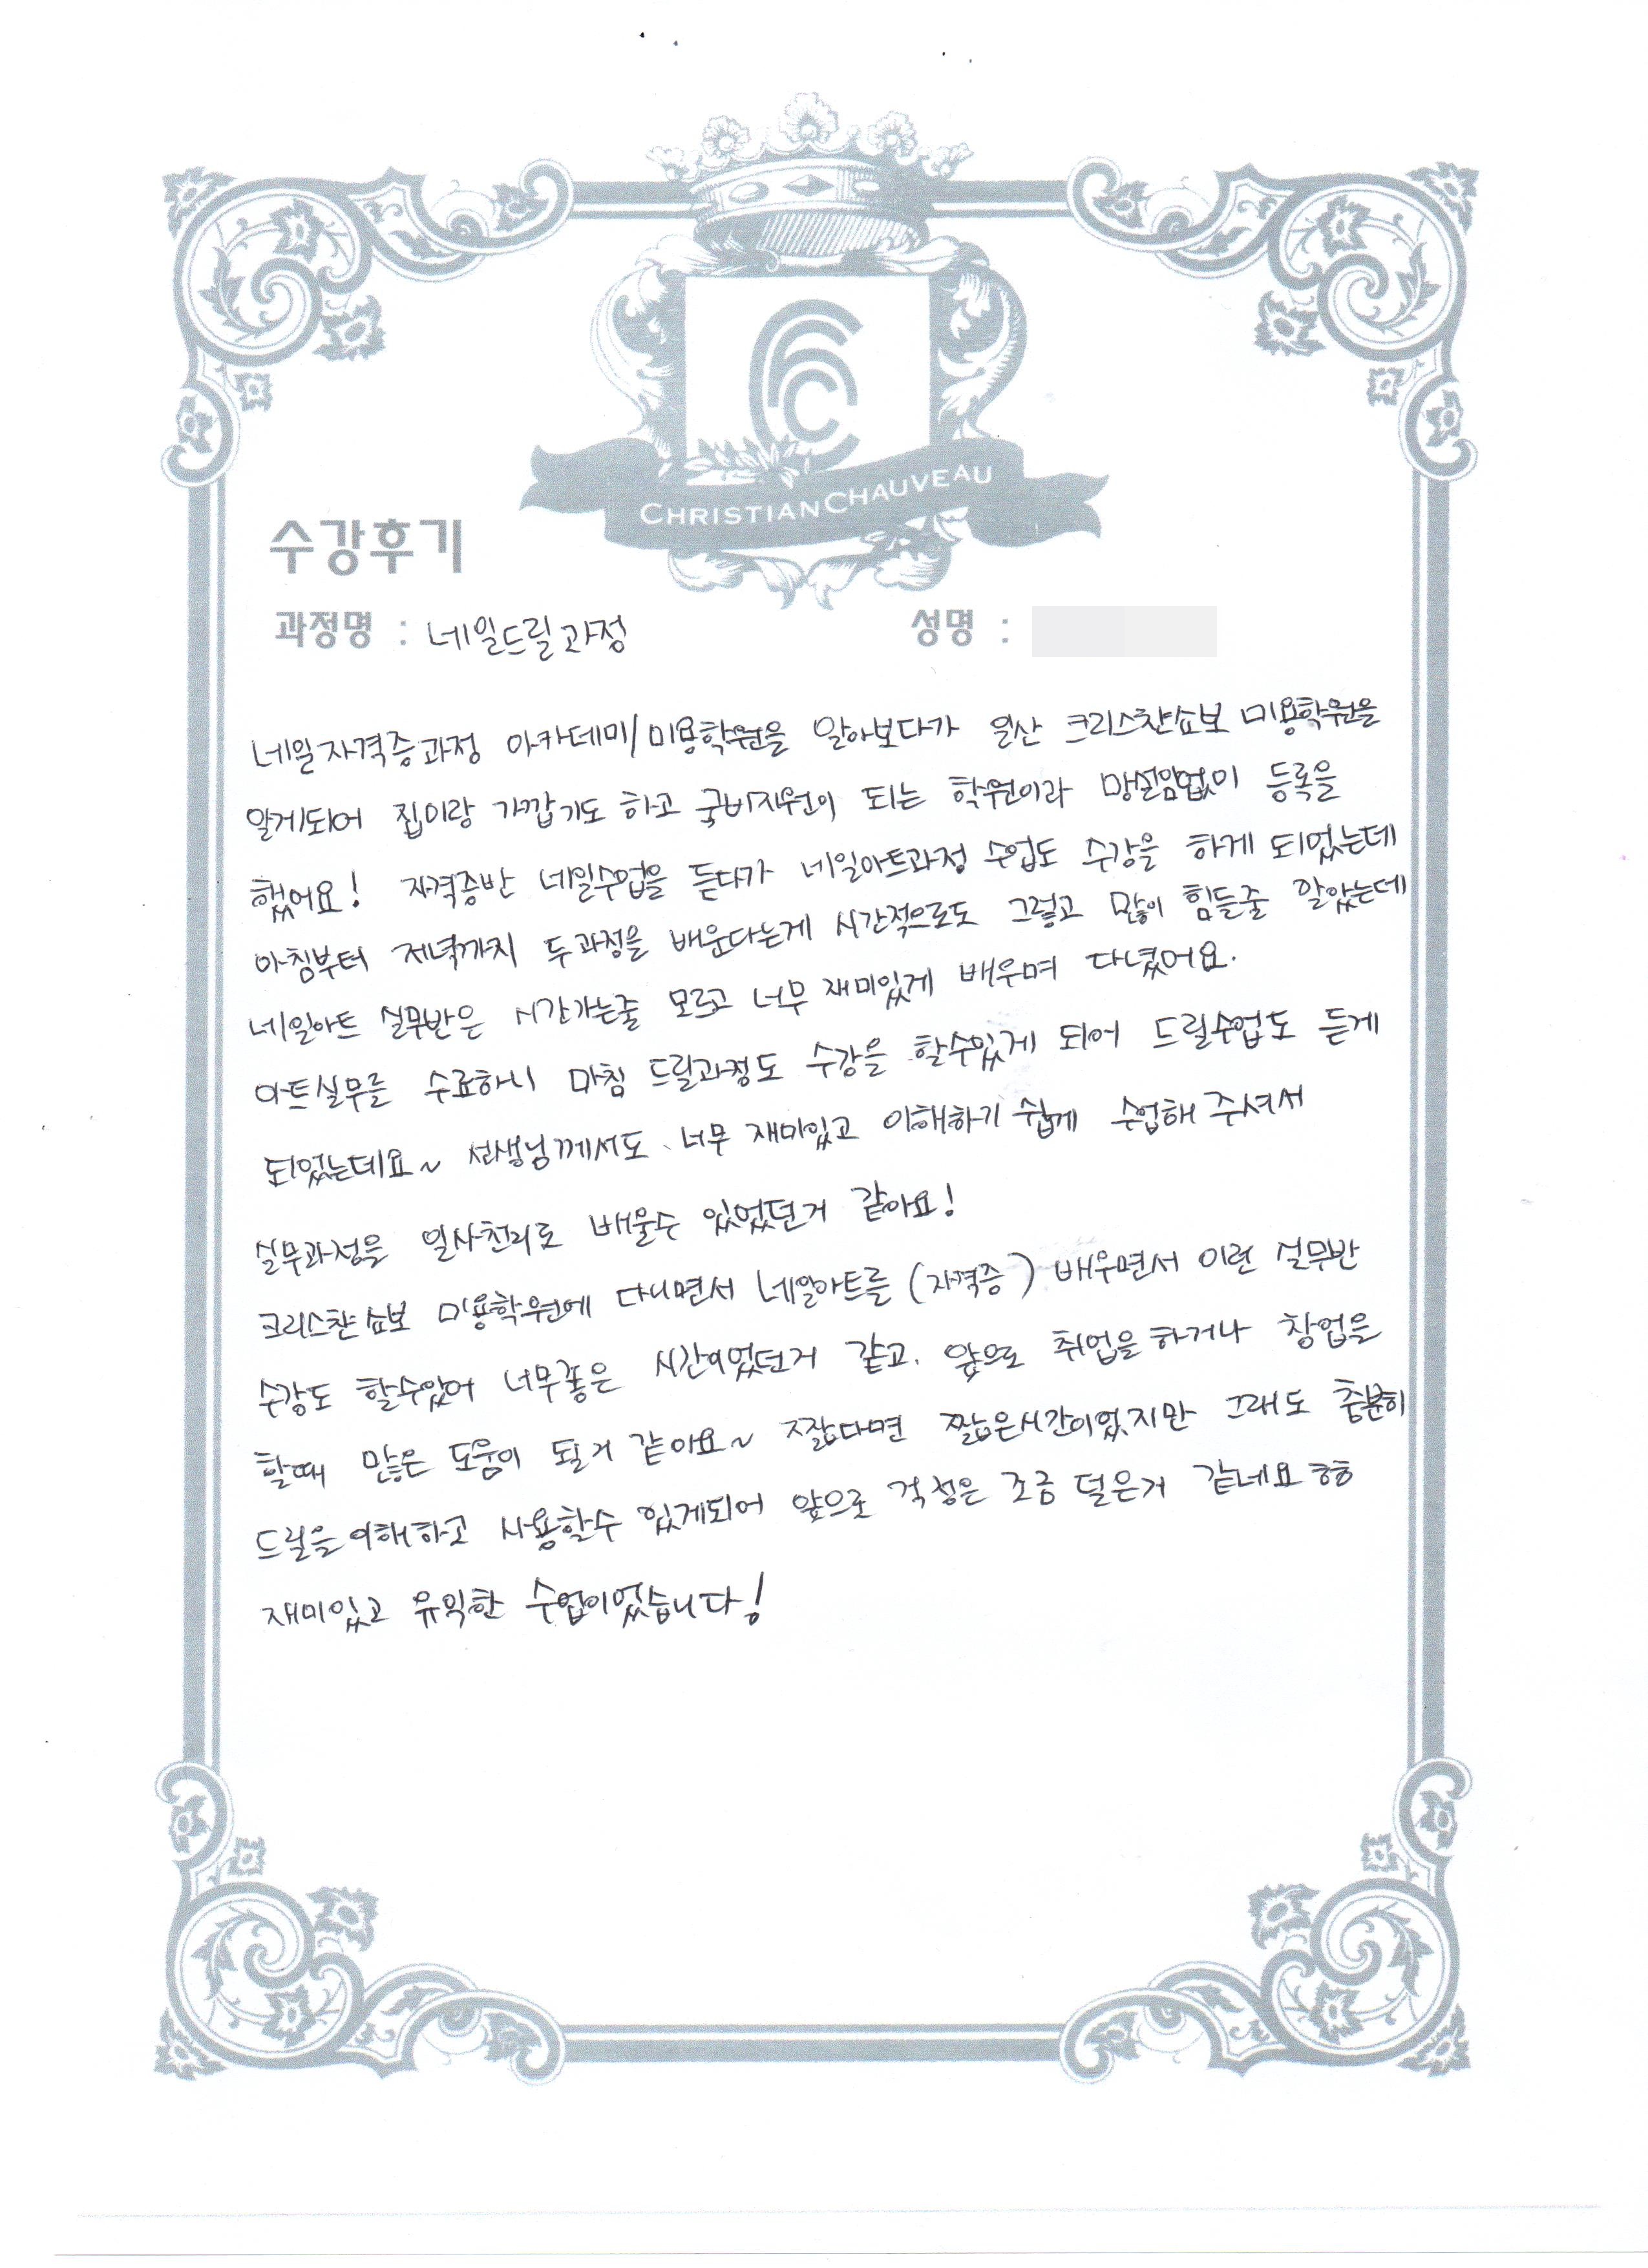 CHRISTIAN CHAUVEAU
수강후기
과정명 : 네일드릴과정 성명 :
네일자격증과정 아카데미/미용학원을 알아보다가 일산 크리스챤쇼보 미용학원을
알게되어 집이랑 가깝기도 하고 국비지원이 되는 학원이라 망설임없이 등록을
했어요! 자격증반 네일수업을 듣다가 네일아트과정 수업도 수강을 하게 되었는데
아침부터 저녁까지 두과정을 배운다는게 시간적으로도 그렇고 많이 힘들줄 알았는데
네일아트 실무반은 시간가는줄 모르고 너무 재미있게 배우며 다녔어요.
아트실무를 수료하니 마침 드릴과정도 수강을 할수있게 되어 드릴수업도 듣게
되었는데요~ 선생님께서도 너무 재미있고 이해하기 쉽게 수업해 주셔서
실무과정을 일사천리로 배울수 있었던거 같아요!
크리스챤쇼보 미용학원에 다니면서 네일아트를 (자격증) 배우면서 이런 실무반
수강도 할수있어 너무좋은 시간이었던거 같고. 앞으로 취업을하거나 창업을
할때 많은 도움이 될거 같아요~ 짧다면 짧은시간이었지만 그래도 충분히
드릴을이해하고 사용할수 있게되어 앞으로 걱정은 조금 덜은거 같네요 ㅎㅎ
재미있고 유익한 수업이었습니다!